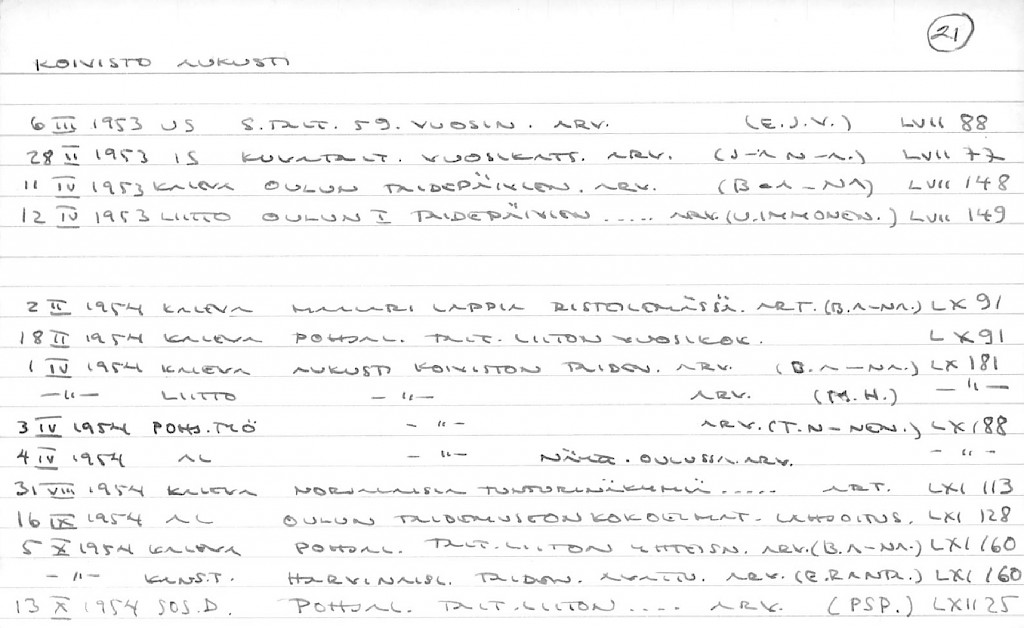 21
KOIVISTO AUKUSTI
6 III 1953 US S.TAIT. 59. VUOSIN. ARV. (E.J.V.) LVII 88
28 II 1953 IS KUVATAIT. VUOSIKATS. ARV. (J-A N-A.) LVII 77
11 IV 1953 KALEVA OULUN TAIDEPÄIVIEN. ARV. (B A-NA) LVII 148
12 IV 1953 LIITTO OULUN I TAIDEPÄIVIEN ..... ARV. (U.IMMONEN.) LVII 149
2 II 1954 KALEVA MAALARI LAPPIA RISTEILEMÄSSÄ. ART. (B.A-NA.) LX 91
18 II 1954 KALEVA POHJAL. TAIT. LIITON VUOSIKOK. LX 91
1 IV 1954 KALEVA AUKUSTI KOIVISTON TAIDEN. ARV. (B.A-NA.) LX 181
-"- LIITTO -"- ARV. (M.H.) -"-
3 IV 1954 POHJ.TYÖ -"- ARV. (T.N-NEN.) LX 188
4 IV 1954 AL -"- NÄYTT. OULUSSA. ARV. -"-
31 VIII 1954 KALEVA NORJALAISIA TUNTURINÄKYMIÄ ..... ART. LXI 113
16 IX 1954 AL OULUN TAIDEMUSEON KOKOELMAT. LAHJOITUS. LXI 128
5 X 1954 KALEVA POHJAL. TAIT. LIITON YHTEISN. ARV. (B.A-NA.) LXI 160
-"- KANS.T. HARVINAISL. TAIDEN. AVATTU. ARV. (E.RANTA.) LXI 160
13 X 1954 SOS.D. POHJAL. TAIT. LIITON .... ARV. (PSP.) LXII 25